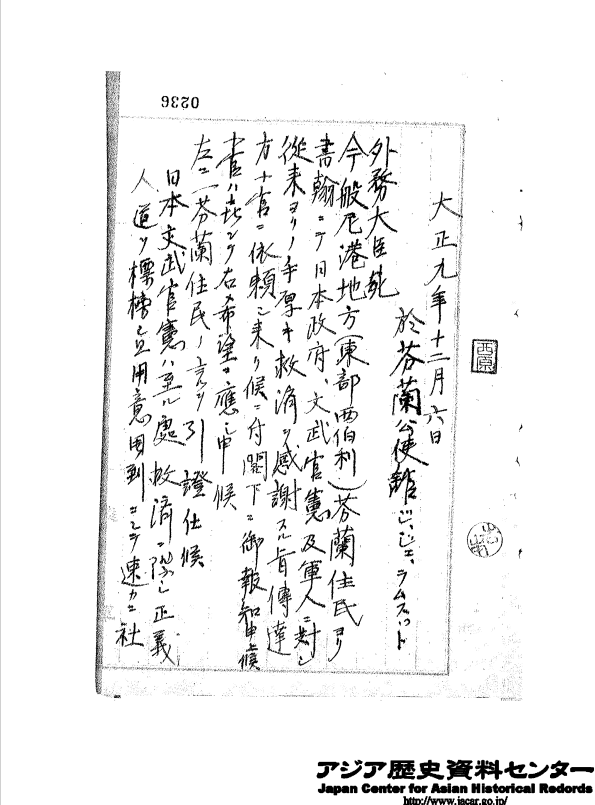 0236
大正九年十二月六日
於芬蘭公使館 ジ、ジェ、ラムステット
外務大臣宛
今般尼港地方(東部西伯利)芬蘭住民ヨリ
書翰ニテ日本政府、文武官憲及軍人ニ対シ
従来ヨリノ手厚キ救済ヲ感謝スル旨伝達
方小官ニ依頼シ来リ候ニ付閣下ニ御報知申候
小官ハ喜ンデ右希望ニ應シ申候
左ニ一芬蘭住民ノ言ヲ引證仕候
日本文武官憲ハ至ル處救済ニ際シ正義
人道ヲ標榜シ且用意周到ニシテ速カニ社
西原
アジア歴史資料センター
Japan Center for Asian Historical Redords
http://www.jacar.go.jp/